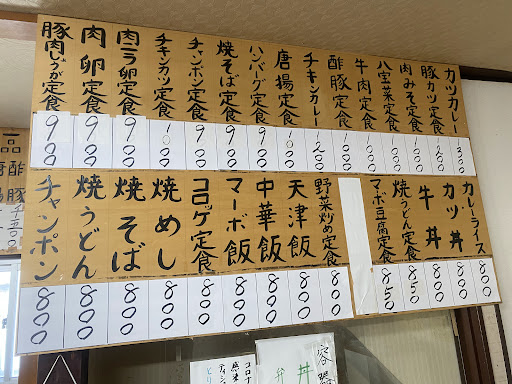 カツカレー
豚カツ定食
肉みそ定食
八宝菜定食 1000
牛肉定食 1000
酢豚定食 1000
チキンカレー 1200
唐揚定食 1000
ハンバーグ定食 900
焼そば定食 900
チャンポン定食 900
チキンカツ定食 1000
肉ニラ卵定食 900
肉卵定食 900
豚肉しょうが定食 900
カレーライス 800
カツ丼 800
牛丼 800
焼うどん定食 850
マボ豆腐定食 850
野菜炒め定食 800
天津飯 800
中華飯 800
マーボ飯 800
コロッケ定食 800
焼めし 800
焼そば 800
焼うどん 800
チャンポン 800
酢豚
弁丼
コロナ